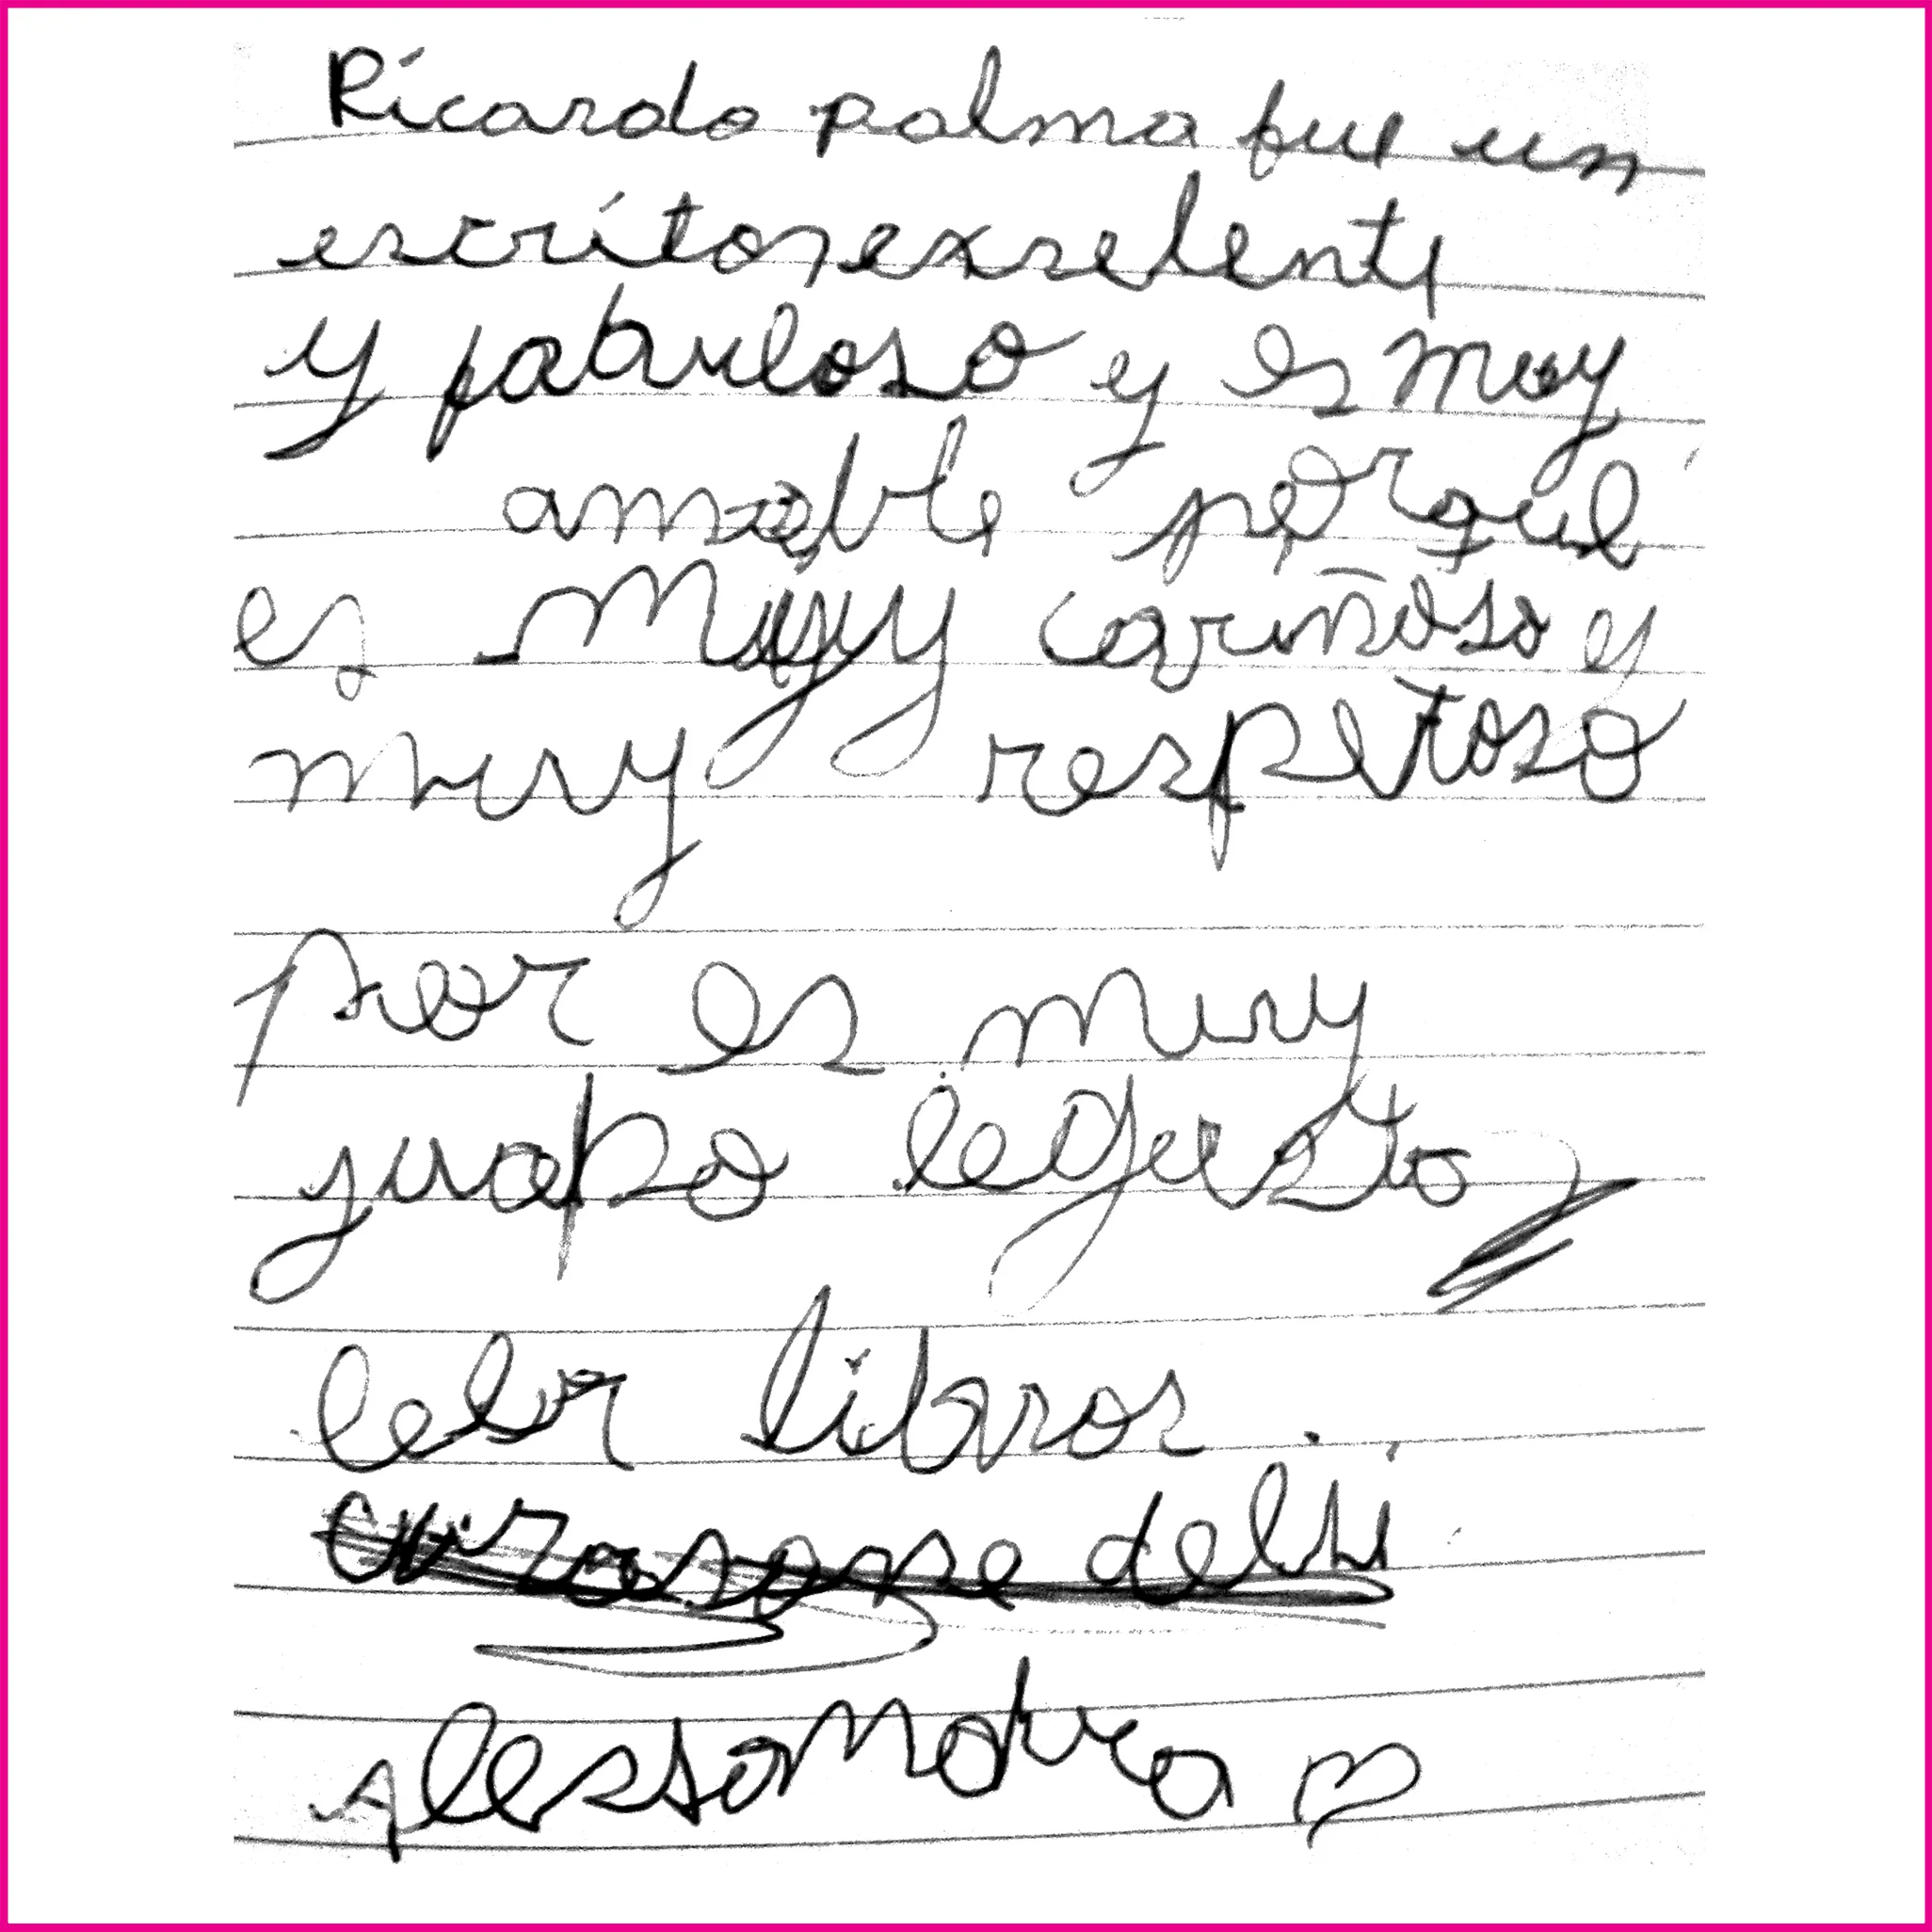 Ricardo palma fue un
escritor exselente
y fabuloso y es muy
amable porque
es muy cariñoso y
muy respetoso
peor es muy
juapo le gusto
leer libros.
Alessandra ♡